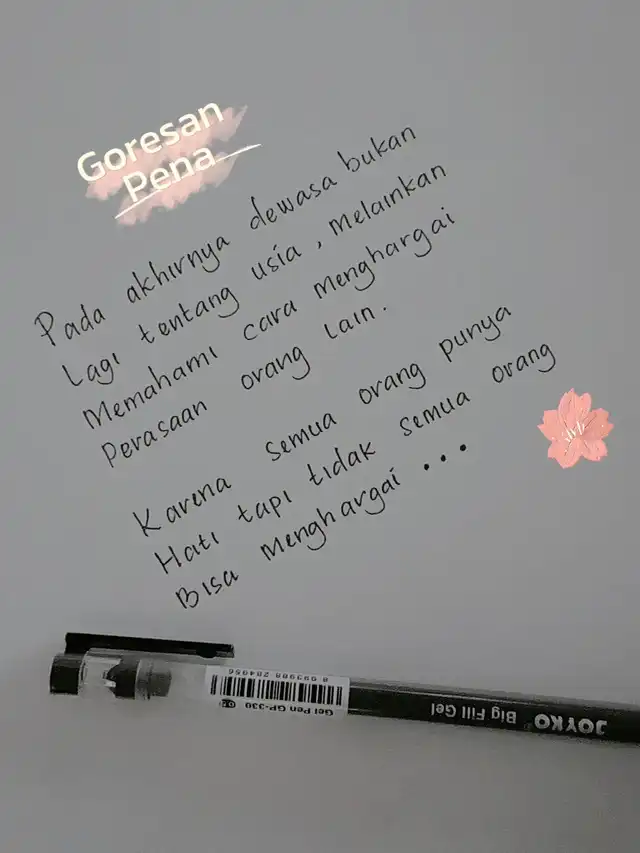 Goresan
Pena
Pada akhirnya dewasa bukan
Lagi tentang usia, melainkan
Memahami cara menghargai
Perasaan orang lain.
Karena semua orang punya
Hati tapi tidak semua orang
Bisa menghargai ...
8 993988 284956
Gel Pen GP-330
JOYKO® Big Fill Gel